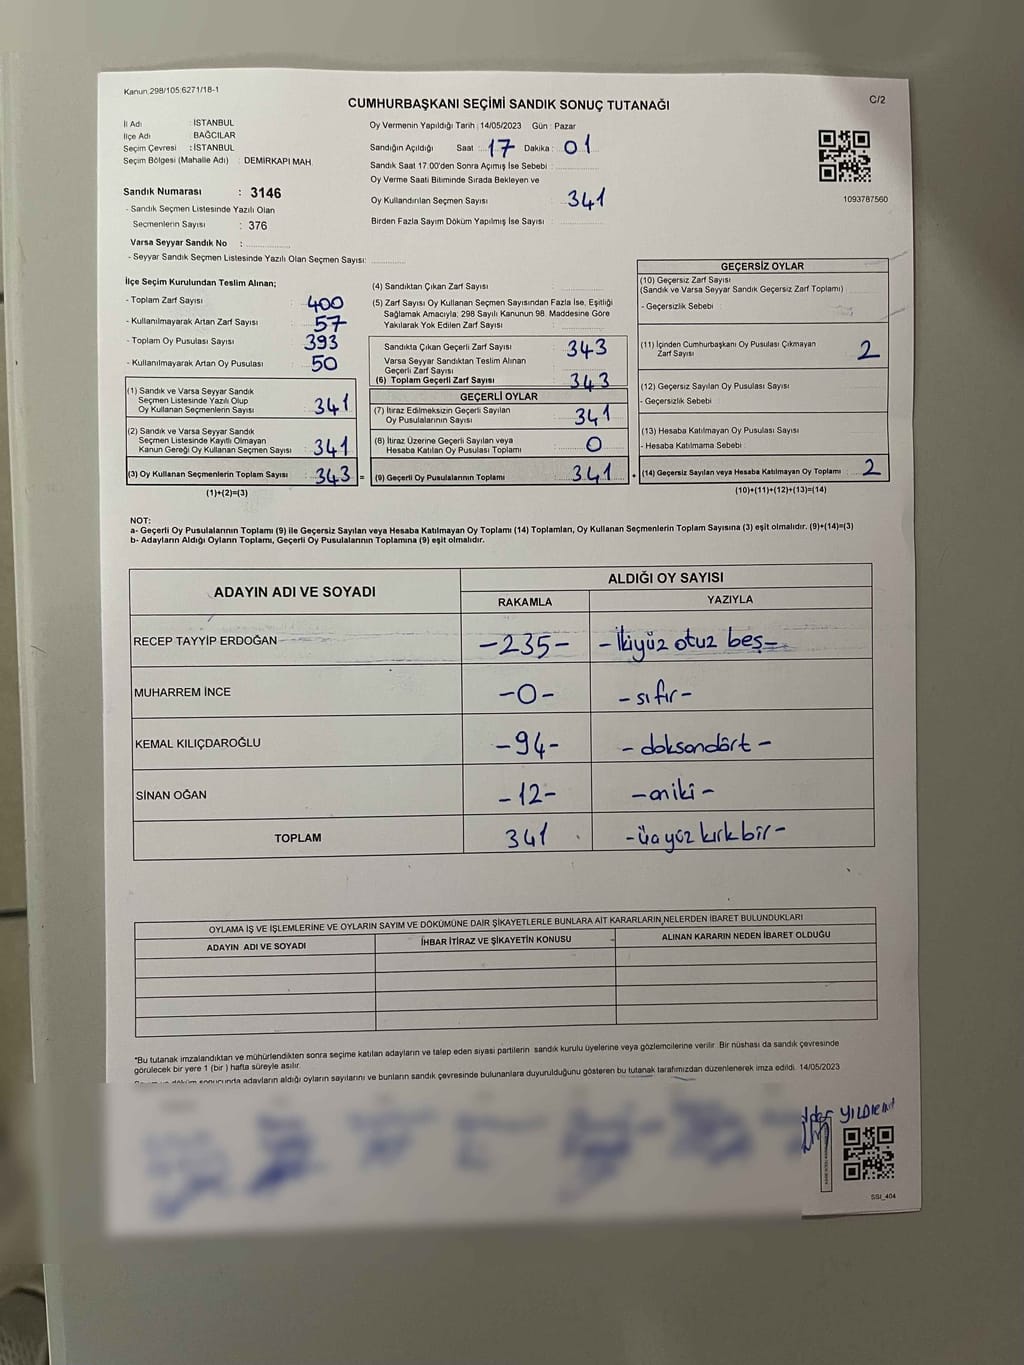 Kanun 298/105 6271/18-1
CUMHURBAŞKANI SEÇİMİ SANDIK SONUÇ TUTANAĞI
C/2
İl Adı : İSTANBUL
İlçe Adı : BAĞCILAR
Seçim Çevresi : İSTANBUL
Seçim Bölgesi (Mahalle Adı) : DEMİRKAPI MAH.
Sandık Numarası : 3146
- Sandık Seçmen Listesinde Yazılı Olan
Seçmenlerin Sayısı : 376
Varsa Seyyar Sandık No :
- Seyyar Sandık Seçmen Listesinde Yazılı Olan Seçmen Sayısı:
Oy Vermenin Yapıldığı Tarih : 14/05/2023 Gün : Pazar
Sandığın Açıldığı Saat : 17 Dakika : 01
Sandık Saat 17.00'den Sonra Açılmış İse Sebebi :
Oy Verme Saati Bitiminde Sırada Bekleyen ve
Oy Kullandırılan Seçmen Sayısı : 341
Birden Fazla Sayım Döküm Yapılmış İse Sayısı :
1093787560
İlçe Seçim Kurulundan Teslim Alınan;
- Toplam Zarf Sayısı : 400
- Kullanılmayarak Artan Zarf Sayısı : 57
- Toplam Oy Pusulası Sayısı : 393
- Kullanılmayarak Artan Oy Pusulası : 50
(1) Sandık ve Varsa Seyyar Sandık
Seçmen Listesinde Yazılı Olup
Oy Kullanan Seçmenlerin Sayısı : 341
(2) Sandık ve Varsa Seyyar Sandık
Seçmen Listesinde Kayıtlı Olmayan
Kanun Gereği Oy Kullanan Seçmen Sayısı : 341
(3) Oy Kullanan Seçmenlerin Toplam Sayısı : 343 =
(1)+(2)=(3)
(4) Sandıktan Çıkan Zarf Sayısı :
(5) Zarf Sayısı Oy Kullanan Seçmen Sayısından Fazla İse, Eşitliği
Sağlamak Amacıyla; 298 Sayılı Kanunun 98. Maddesine Göre
Yakılarak Yok Edilen Zarf Sayısı :
Sandıkta Çıkan Geçerli Zarf Sayısı : 343
Varsa Seyyar Sandıktan Teslim Alınan
Geçerli Zarf Sayısı :
(6) Toplam Geçerli Zarf Sayısı : 343
GEÇERLİ OYLAR
(7) İtiraz Edilmeksizin Geçerli Sayılan
Oy Pusulalarının Sayısı : 341
(8) İtiraz Üzerine Geçerli Sayılan veya
Hesaba Katılan Oy Pusulası Toplamı : 0
(9) Geçerli Oy Pusulalarının Toplamı : 341 +
GEÇERSİZ OYLAR
(10) Geçersiz Zarf Sayısı
(Sandık ve Varsa Seyyar Sandık Geçersiz Zarf Toplamı) :
- Geçersizlik Sebebi :
(11) İçinden Cumhurbaşkanı Oy Pusulası Çıkmayan
Zarf Sayısı : 2
(12) Geçersiz Sayılan Oy Pusulası Sayısı :
- Geçersizlik Sebebi :
(13) Hesaba Katılmayan Oy Pusulası Sayısı :
- Hesaba Katılmama Sebebi :
(14) Geçersiz Sayılan veya Hesaba Katılmayan Oy Toplamı : 2
(10)+(11)+(12)+(13)=(14)
NOT:
a- Geçerli Oy Pusulalarının Toplamı (9) ile Geçersiz Sayılan veya Hesaba Katılmayan Oy Toplamı (14) Toplamları, Oy Kullanan Seçmenlerin Toplam Sayısına (3) eşit olmalıdır. (9)+(14)=(3)
b- Adayların Aldığı Oyların Toplamı, Geçerli Oy Pusulalarının Toplamına (9) eşit olmalıdır.
ADAYIN ADI VE SOYADI
ALDIĞI OY SAYISI
RAKAMLA YAZIYLA
RECEP TAYYİP ERDOĞAN -235- -İkiyüz otuz beş-
MUHARREM İNCE -0- -sıfır-
KEMAL KILIÇDAROĞLU -94- -doksandört-
SİNAN OĞAN -12- -oniki-
TOPLAM 341 -üçyüz kırkbir-
OYLAMA İŞ VE İŞLEMLERİNE VE OYLARIN SAYIM VE DÖKÜMÜNE DAİR ŞİKAYETLERLE BUNLARA AİT KARARLARIN NELERDEN İBARET BULUNDUKLARI
ADAYIN ADI VE SOYADI İHBAR İTİRAZ VE ŞİKAYETİN KONUSU ALINAN KARARIN NEDEN İBARET OLDUĞU
*Bu tutanak imzalandıktan ve mühürlendikten sonra seçime katılan adayların ve talep eden siyasi partilerin sandık kurulu üyelerine veya gözlemcilerine verilir. Bir nüshası da sandık çevresinde
görülecek bir yere 1 (bir) hafta süreyle asılır.
adayların aldığı oyların sayılarını ve bunların sandık çevresinde bulunanlara duyurulduğunu gösteren bu tutanak tarafımızdan düzenlenerek imza edildi. 14/05/2023
YILDIRIM
SSI_404